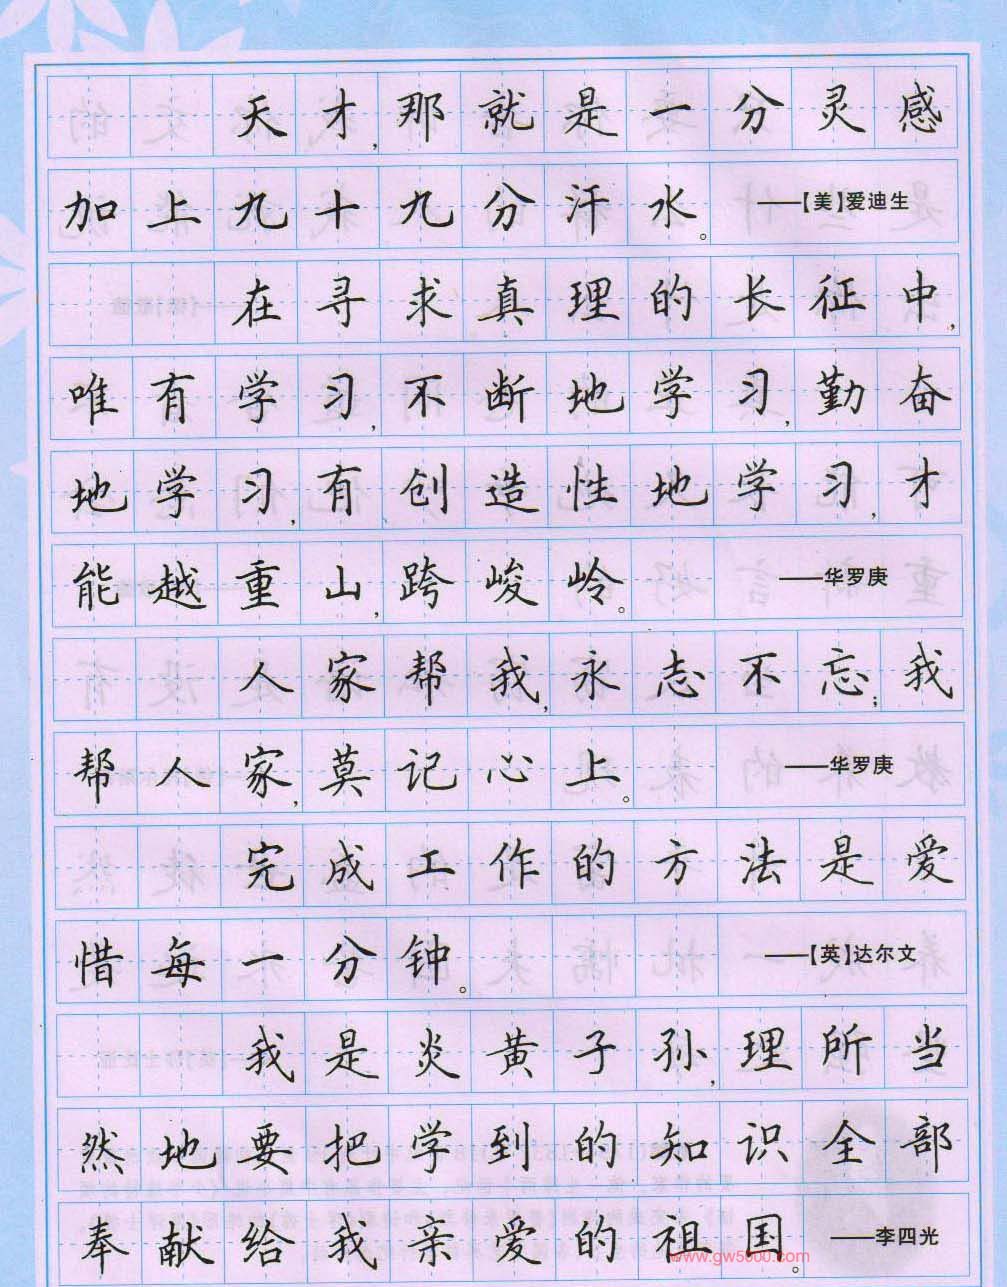 天才,那就是一分灵感
加上九十九分汗水。——【美】爱迪生
在寻求真理的长征中,
唯有学习,不断地学习,勤奋
地学习,有创造性地学习,才
能越重山,跨峻岭。——华罗庚
人家帮我,永志不忘;我
帮人家,莫记心上。——华罗庚
完成工作的方法是爱
惜每一分钟。——【英】达尔文
我是炎黄子孙,理所当
然地要把学到的知识全部
奉献给我亲爱的祖国。——李四光
www.gw5000.com